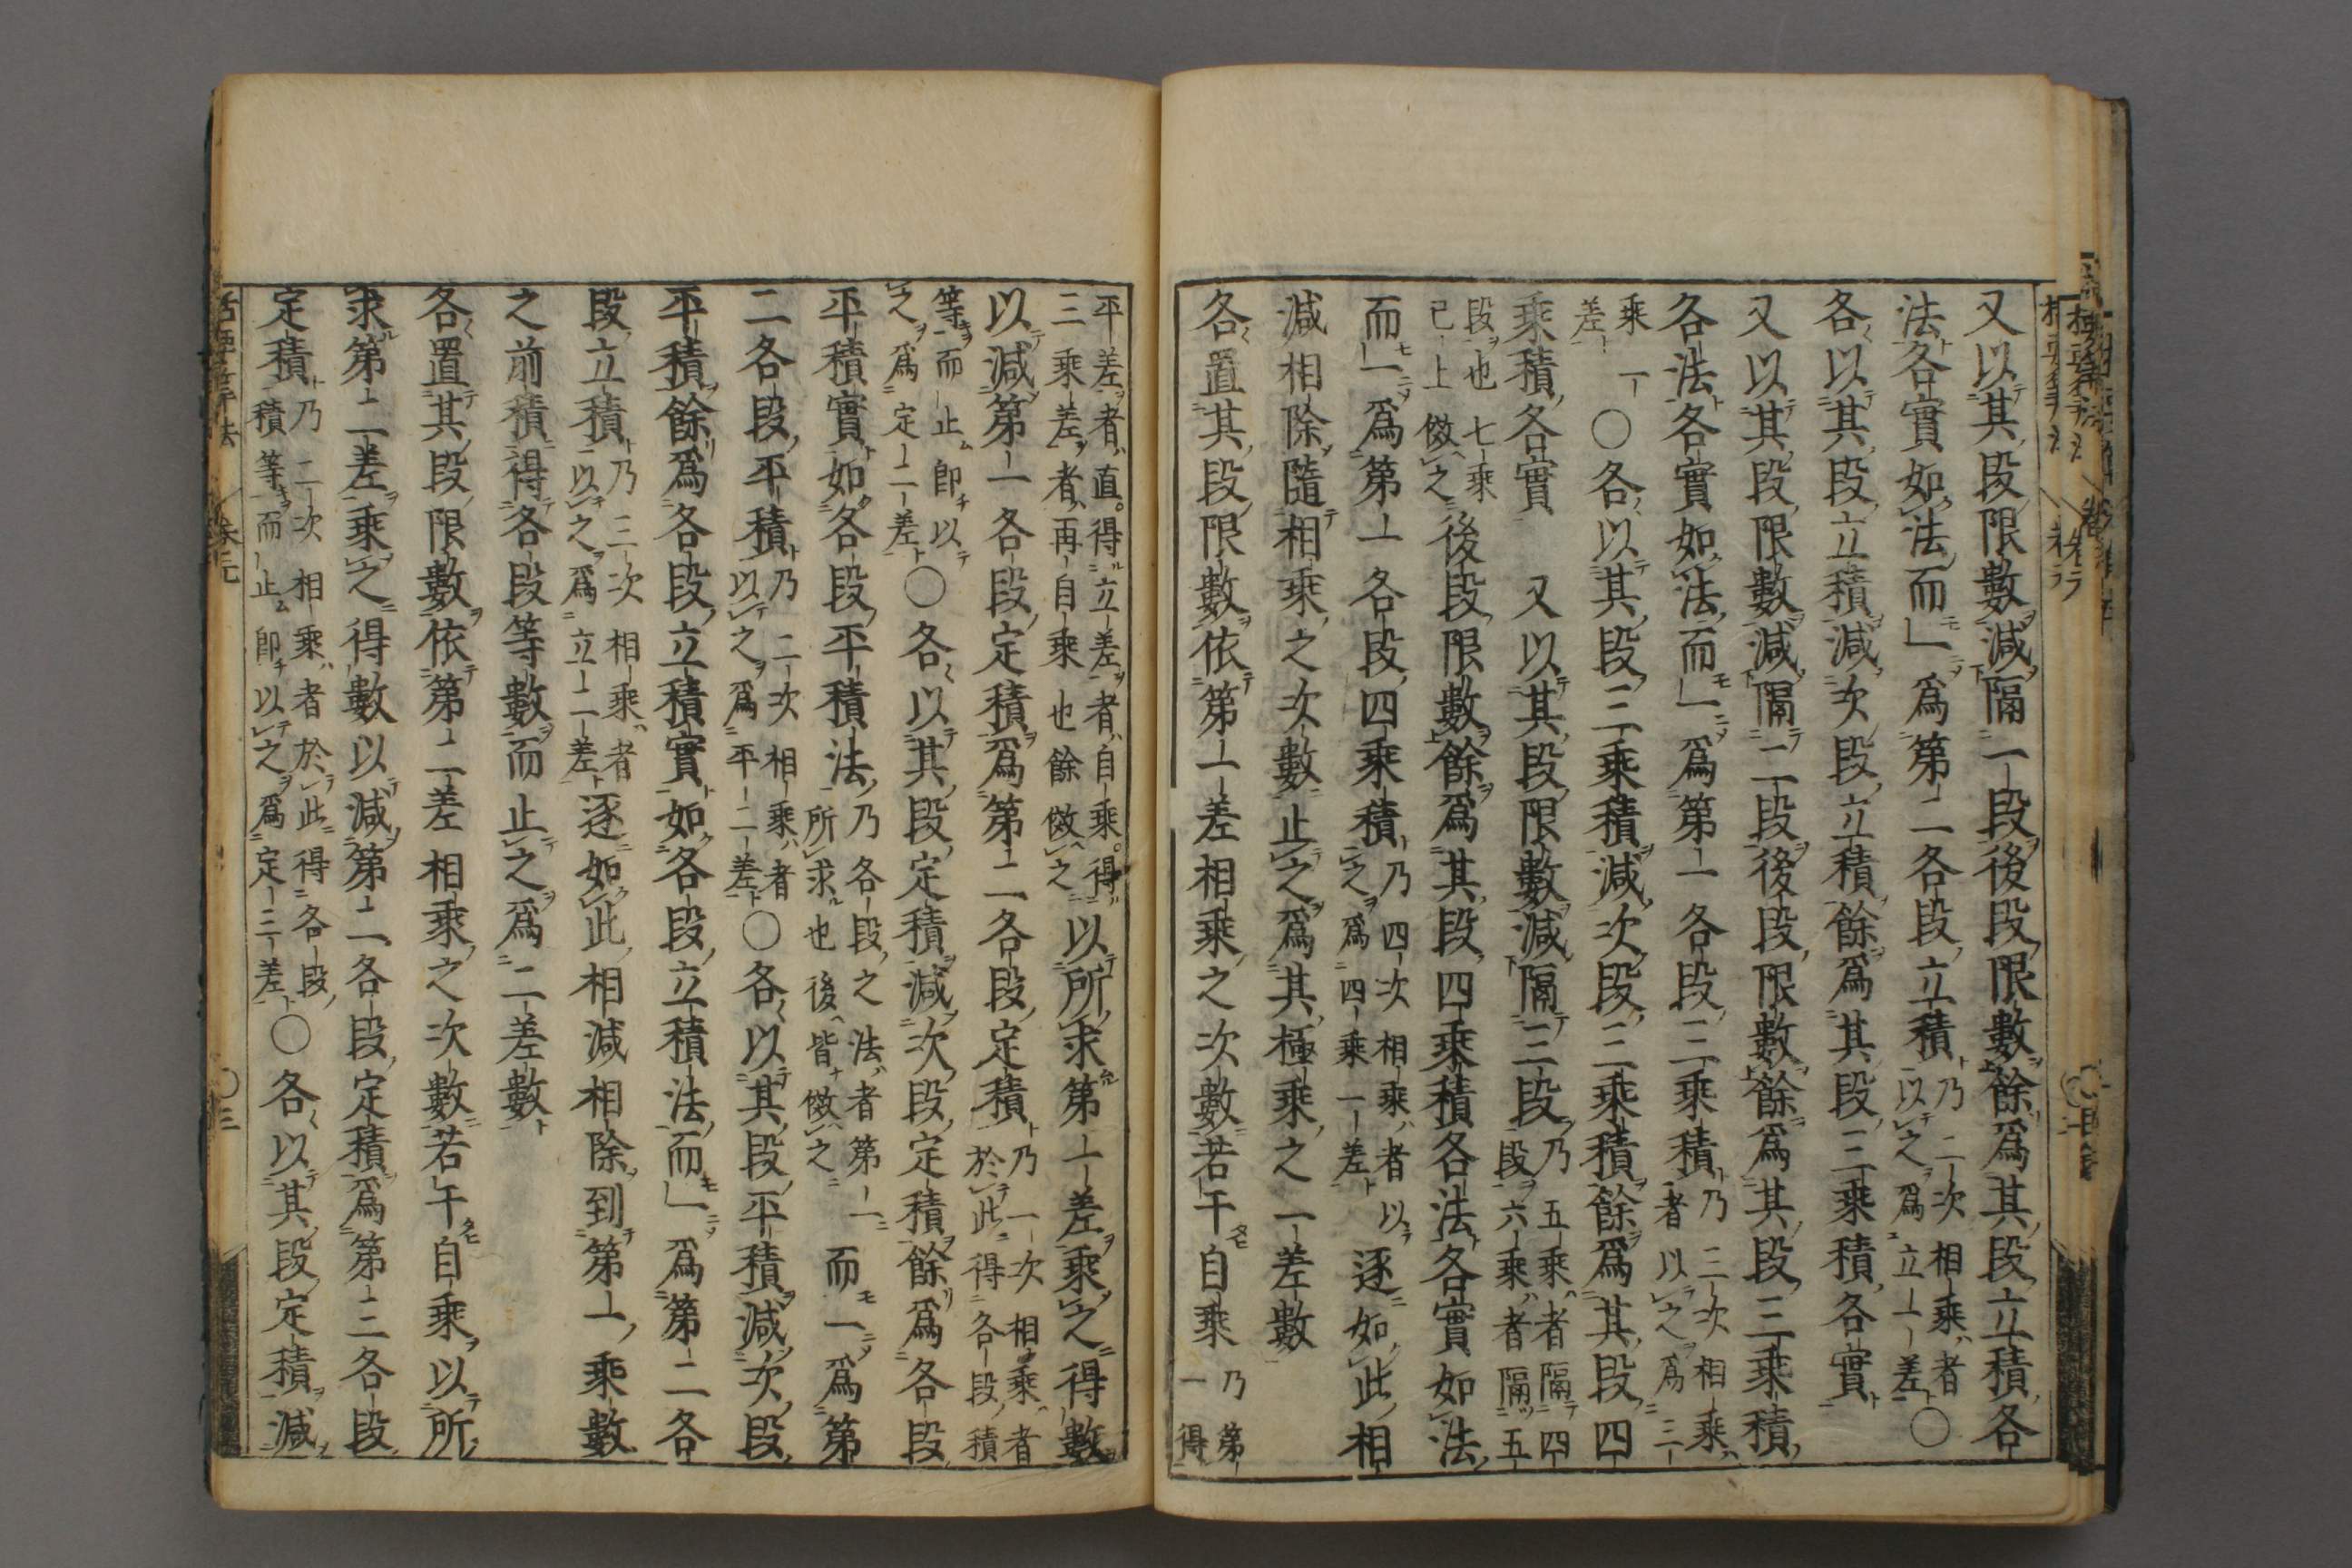 又以其段限數減隔一段後段限數餘爲其段立積各
法各實如法而一爲第二各段立積乃二次相乘者以之爲立一差○
各以其段立積減次段立積餘爲其段三乘積各實
又以其段限數減隔二段後段限數餘爲其段三乘積
各法各實如法而一爲第一各段三乘積乃三次相乘者以之爲三
乘一差○各以其段三乘積減次段三乘積餘爲其段四
乘積各實 又以其段限數減隔三段乃五乘者隔四段六乘者隔五
段也七乘已上倣之後段限數餘爲其段四乘積各法各實如法
而一爲第一各段四乘積乃四次相乘者以之爲四乘一差逐如此相
減相除隨相乘之次數止之爲其極乘之一差數
各置其段限數依第一差相乘之次數若干自乘乃第一得
平差者直得立差者自乘得三乘差者再自乘也餘倣之以所求第一差乘之得數
以減第一各段定積爲第二各段定積乃一次相乘者於此得各段積
等而止即以之爲定二差○各以其段定積減次段定積餘爲各段
平積實如各段平積法乃各段之法者第一所求也後皆倣之而一爲第
二各段平積乃二次相乘者以之爲平二差○各以其段平積減次段
平積餘爲各段立積實如各段立積法而一爲第二各
段立積乃三次相乘者以之爲立二差逐如此相減相除到第一乘數
之前積得各段等數而止之爲二差數
各置其段限數依第二差相乘之次數若干自乘以所
求第二差乘之得數以減第二各段定積爲第三各段
定積乃二次相乘者於此得各段積等而止即以之爲定三差○各以其段定積減